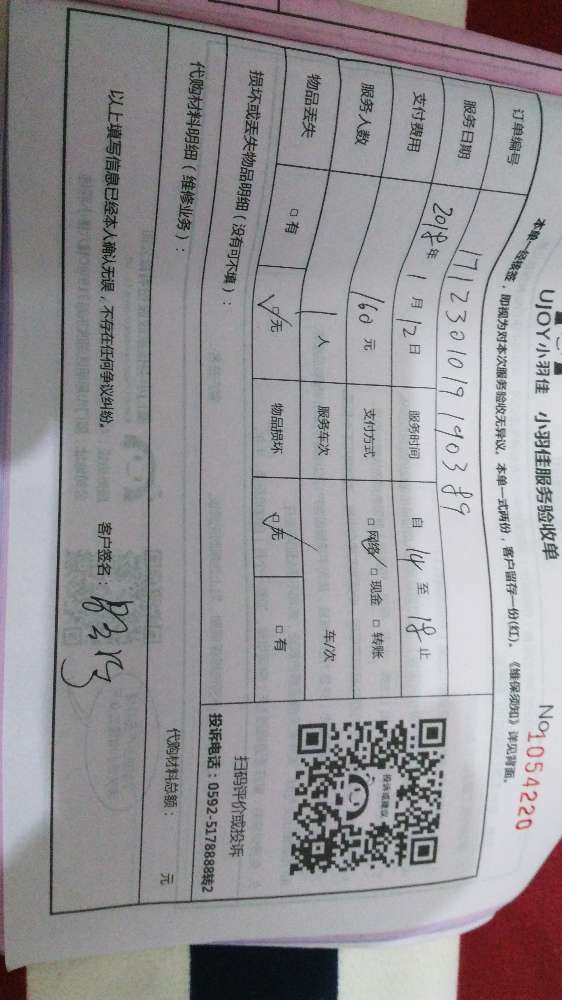 UJOY小羽佳 小羽佳服务验收单
No 1054220
本单一经接签，即视为对本次服务验收无异议。本单一式两份，客户留存一份(红)。《维保须知》详见背面。
订单编号 1712301019190389
服务日期 2018年1月12日 服务时间 自14至18止
支付费用 160元 支付方式 □网络 □现金 □转账
服务人数 1人 服务车次 车/次
物品丢失 □有 □无 物品损坏 □无 □有
损坏或丢失物品明细（没有可不填）：
投诉或建议
扫码评价或投诉
投诉电话：0592-5178888转2
代购材料明细（维修业务）：
代购材料总额： 元
以上填写信息已经本人确认无误，不存在任何争议纠纷。 客户签名：